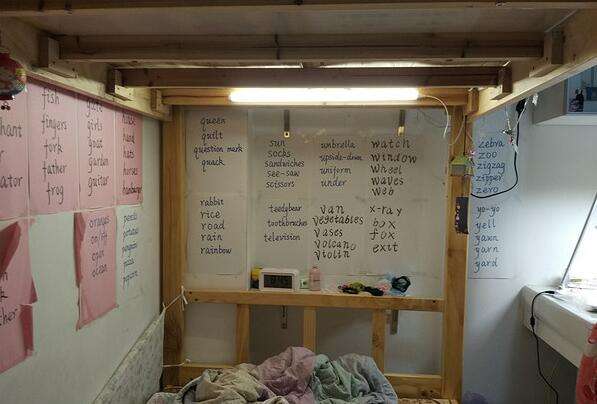 fish
fingers
fork
father
frog
girls
goat
garden
guitar
hats
horses
hamburger
oranges
on/off
open
ocean
pencils
queen
quilt
question mark
quack
rabbit
rice
road
rain
rainbow
sun
socks
sandwiches
see-saw
scissors
teedybear
toothbrushes
television
umbrella
upside-down
uniform
under
van
vegetables
vases
volcano
violin
watch
window
wheel
waves
web
x-ray
box
fox
exit
zebra
zoo
zigzag
zipper
zero
yo-yo
yell
yawn
yarn
yard